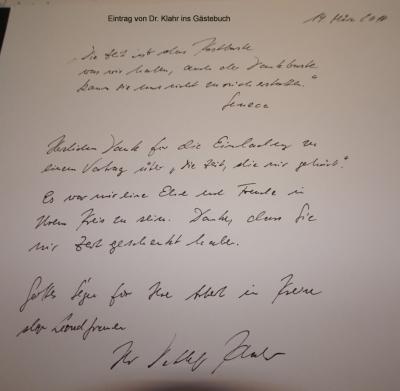 Eintrag von Dr. Klahr ins Gästebuch
14. März 2010
"Die Zeit ist das Kostbarste
was wir haben, auch der Dankbarste
kann sie uns nicht zurückerstatten."
Seneca
Herzlichen Dank für die Einladung zu
einem Vortrag über "die Zeit, die mir gehört".
Es war mir eine Ehre und Freude in
Ihrem Kreis zu sein. Danke, dass Sie
mir Zeit geschenkt haben.
Gottes Segen für Ihre Arbeit im Kreise
der Landfrauen
Ihr Detlef Klahr